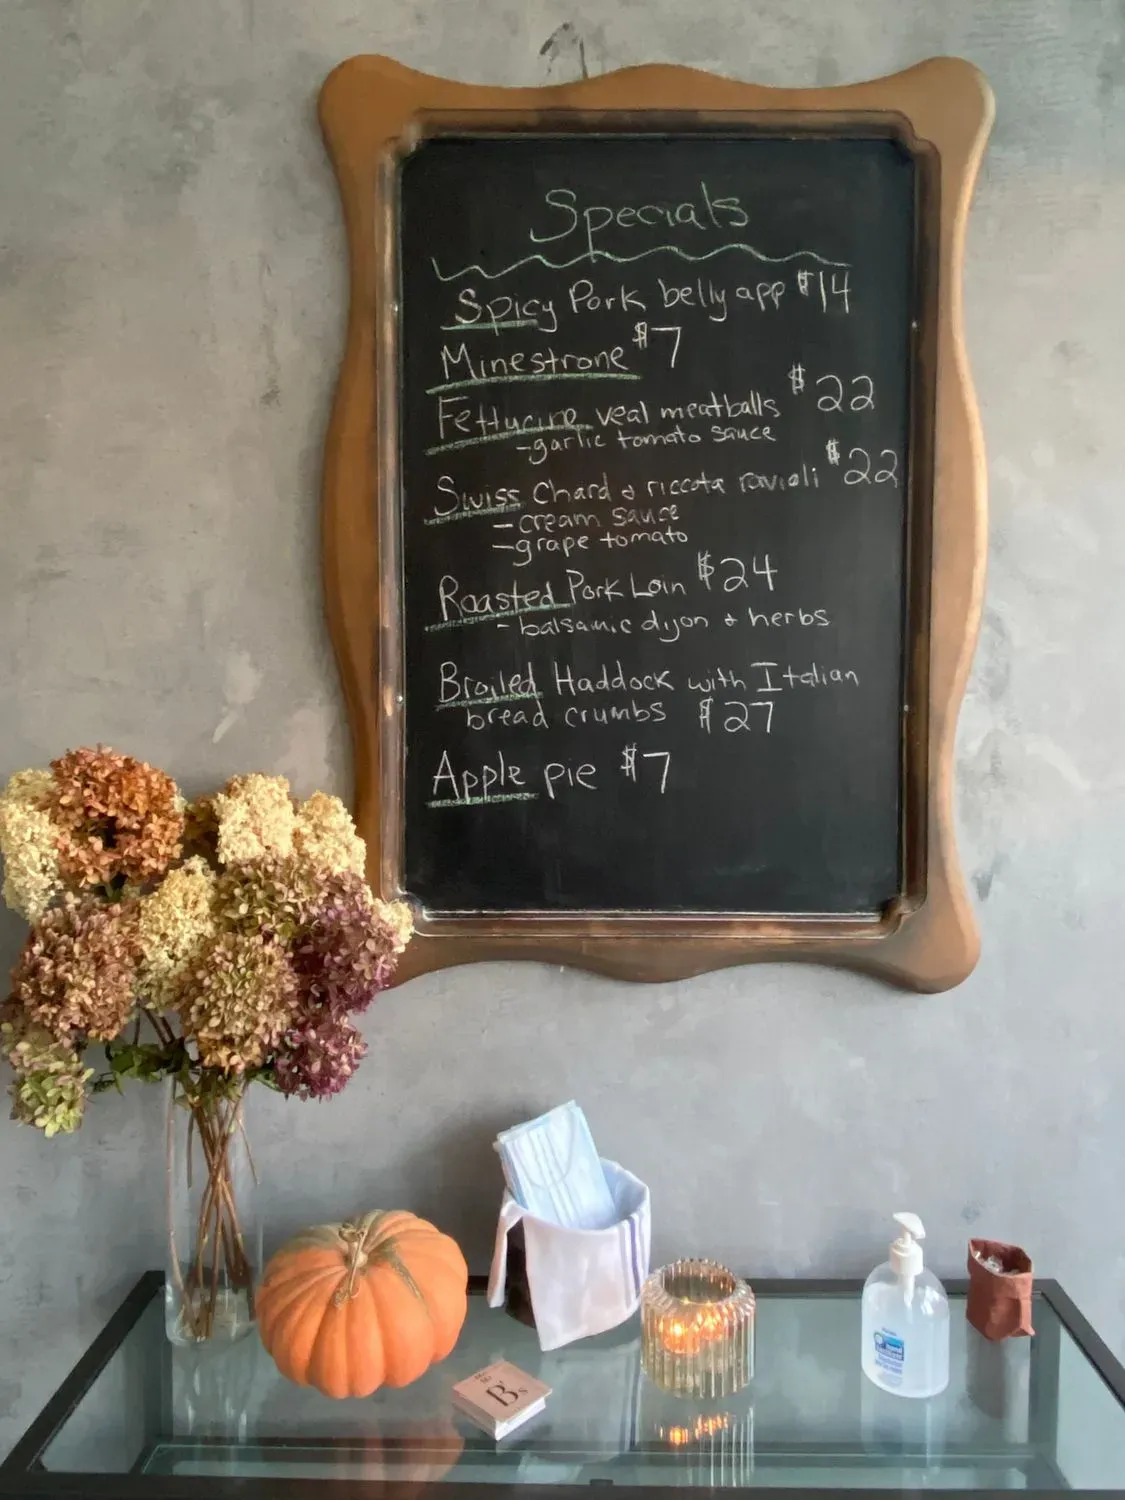 Specials
Spicy Pork belly app $14
Minestrone $7
Fettucine veal meatballs $22
-garlic tomato sauce
Swiss Chard & riccota ravioli $22
- cream sauce
- grape tomato
Roasted Pork Loin $24
- balsamic dijon & herbs
Broiled Haddock with Italian
bread crumbs $27
Apple pie $7
B's